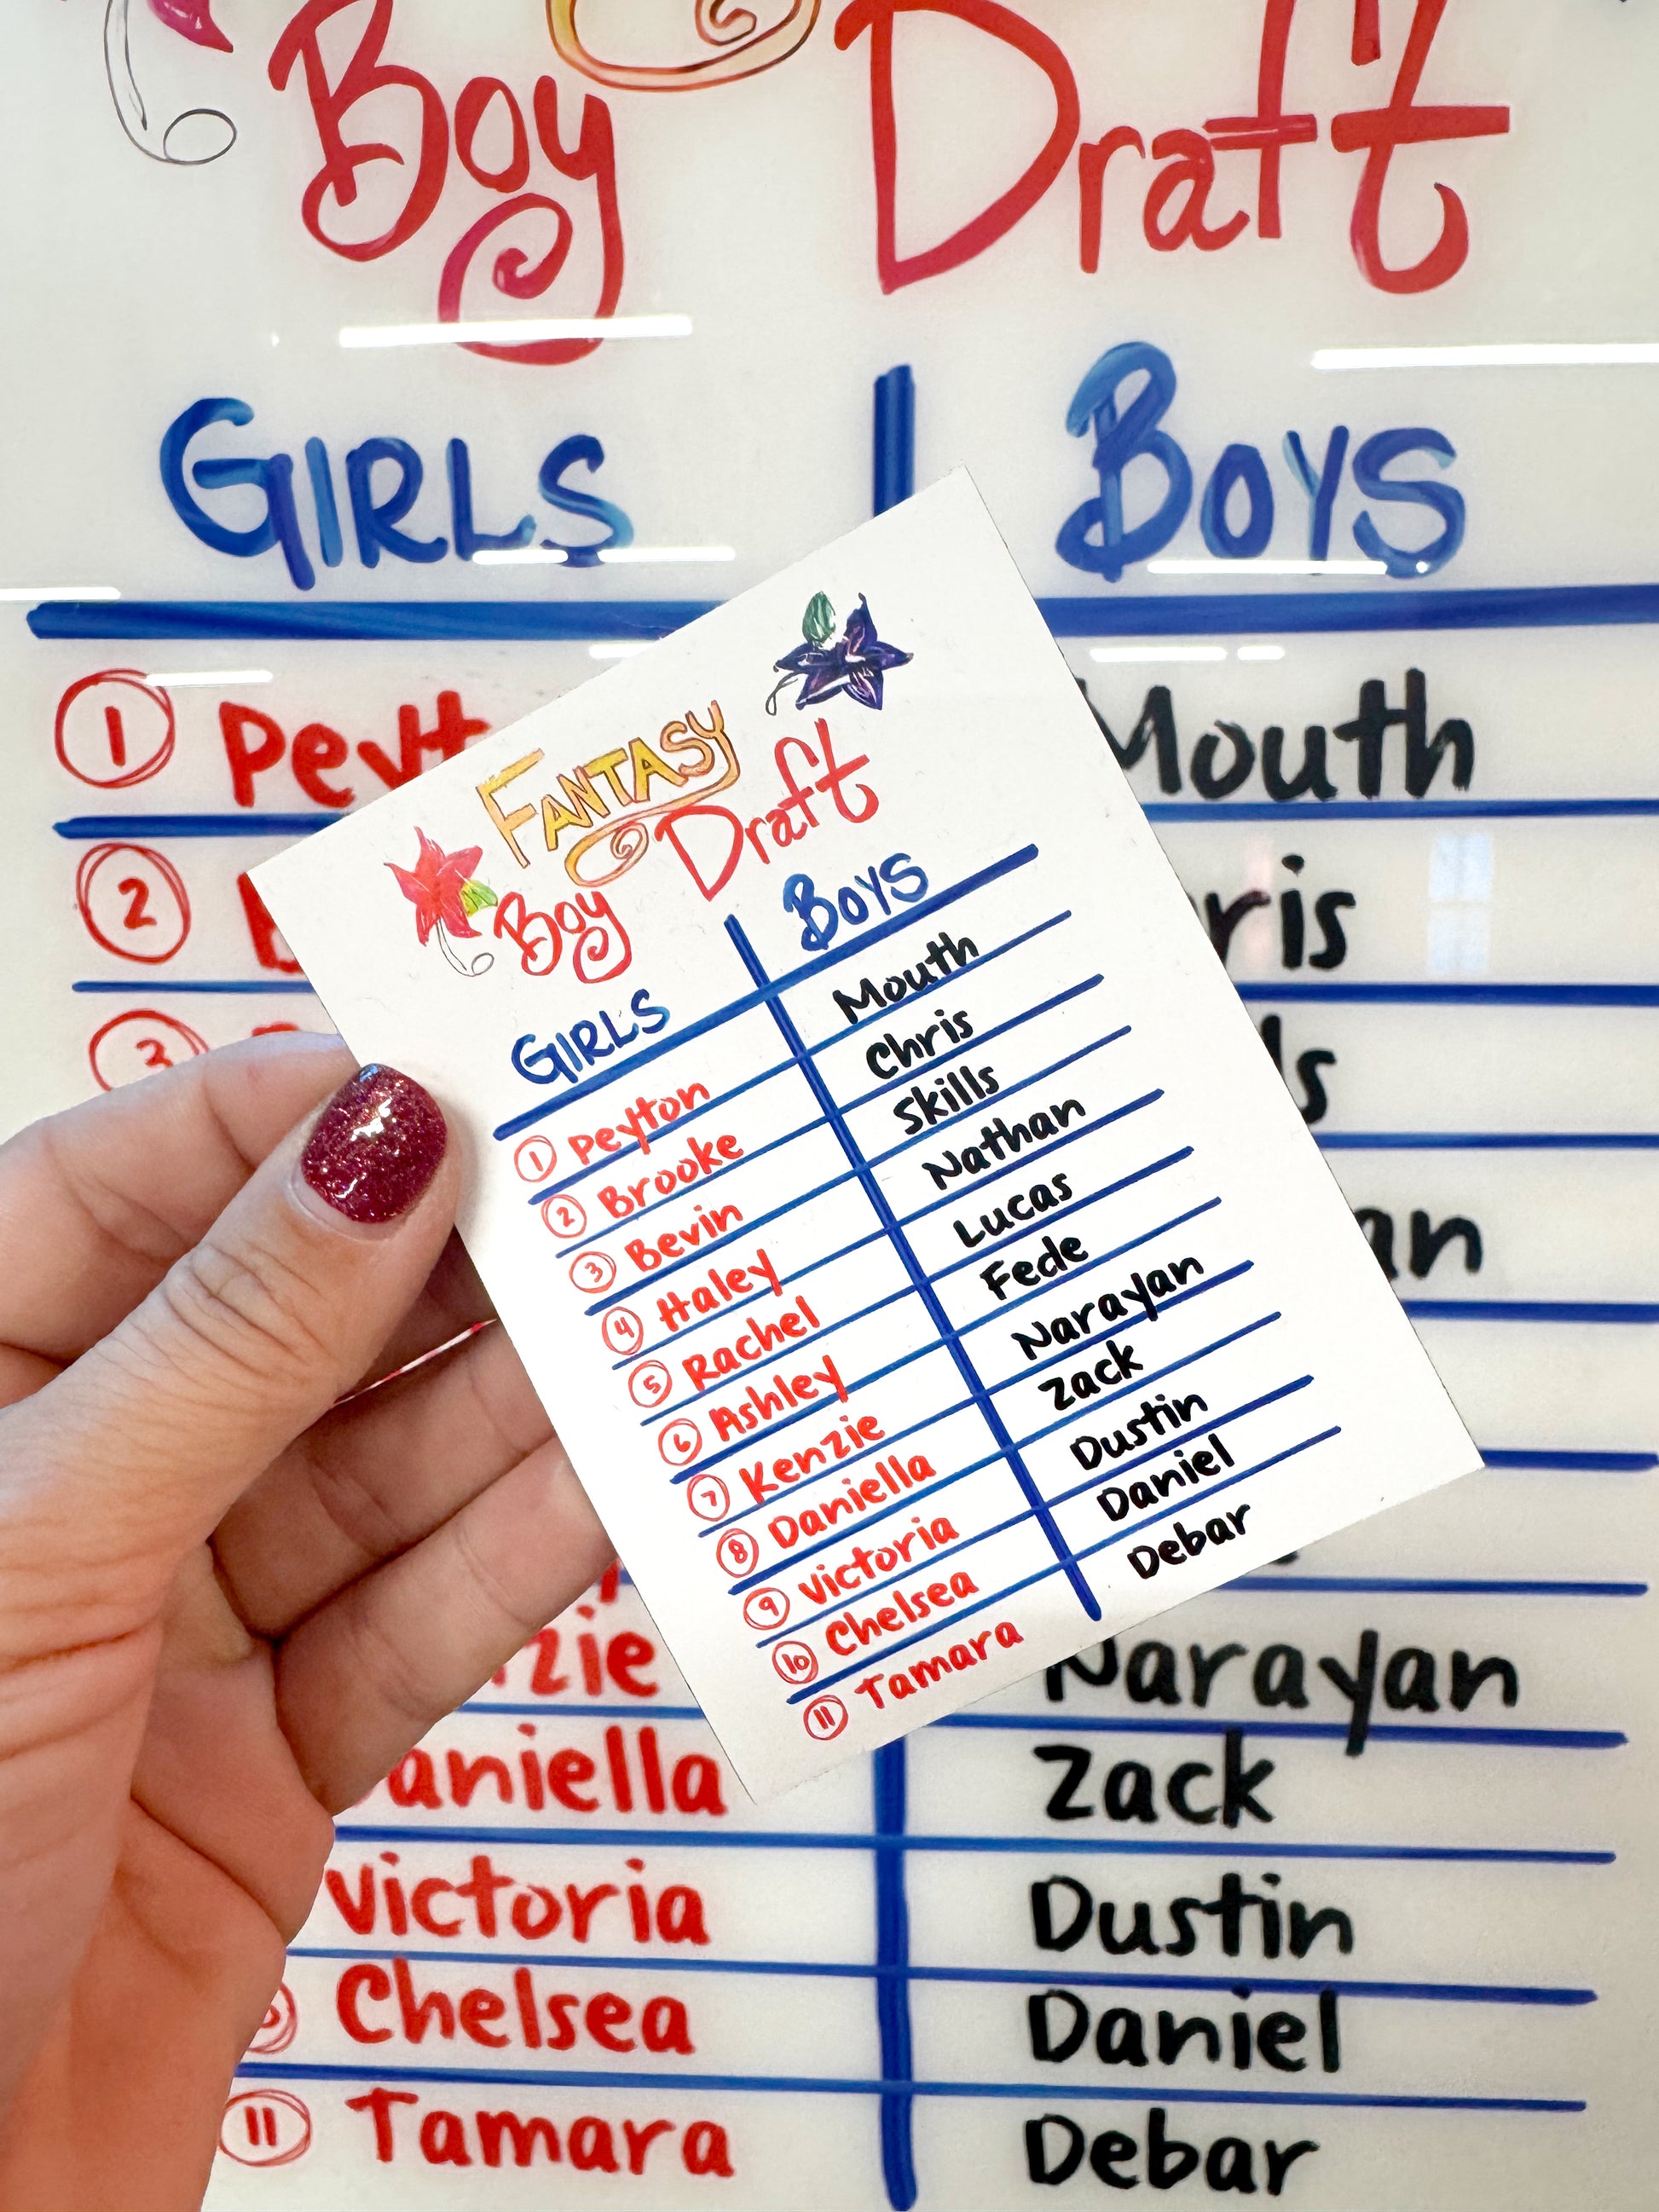 Boy Draft
GIRLS Boys
1 Peyt
Mouth
2
ris
3
ls
an
zie Narayan
aniella Zack
Victoria Dustin
Chelsea Daniel
11 Tamara Debar
FANTASY
Boy Draft
GIRLS Boys
1 Peyton Mouth
2 Brooke Chris
3 Bevin Skills
4 Haley Nathan
5 Rachel Lucas
6 Ashley Fede
7 Kenzie Narayan
8 Daniella Zack
9 Victoria Dustin
10 Chelsea Daniel
11 Tamara Debar